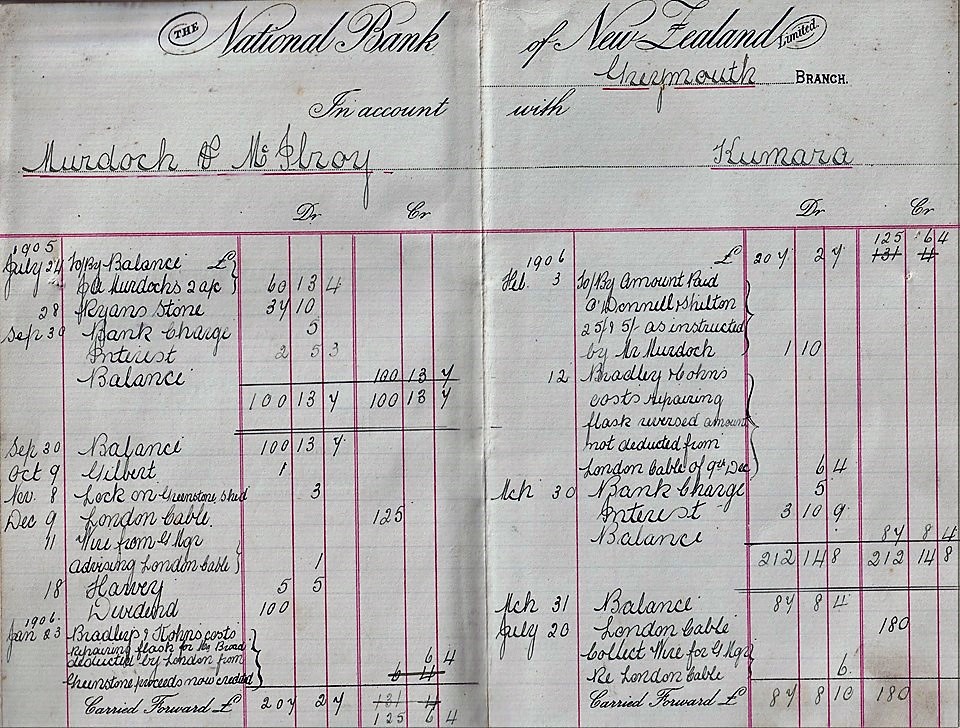 THE National Bank of New Zealand Limited.
Greymouth BRANCH.
In account with
Murdoch & McIlroy Kumara
Dr Cr
1905
July 24 To/By Balance £
J A Murdochs 2 a/c 60 13 4
28 Ryans Stone 37 10
Sep 30 Bank Charge 5
Interest 2 5 3
Balance 100 13 7
100 13 7 100 13 7
Sep 30 Balance 100 13 7
Oct 9 Gilbert 1
Nov. 8 Lock on Greenstone Shed 3
Dec 9 London Cable. 125
11 Wire from G Mgr
advising London Cable 1
18 Harvey 5 5
Dividend 100
1906.
Jan 23 Bradleys & Kohns costs
repairing flask for My Broad
deducted by London from 6 4
Greenstone proceeds now credited 6 4
Carried Forward £ 207 2 7 131 4
125 6 4
Dr Cr
125 6 4
1906 £ 207 2 7 131 4
Feb. 3 To/By Amount Paid
O'Donnell & Shelton
25/- & 5/- as instructed
by Mr Murdoch 1 10
12 Bradley & Cohns
costs repairing
flask reversed amount
not deducted from
London Cable of 9th Dec 6 4
Mch 30 Bank Charge 5
Interest 3 10 9
Balance 87 8 4
212 14 8 212 14 8
Mch 31 Balance 87 8 4
July 20 London Cable 180
Collect Wire for G Mgr
Re London Cable 6
Carried Forward £ 87 8 10 180